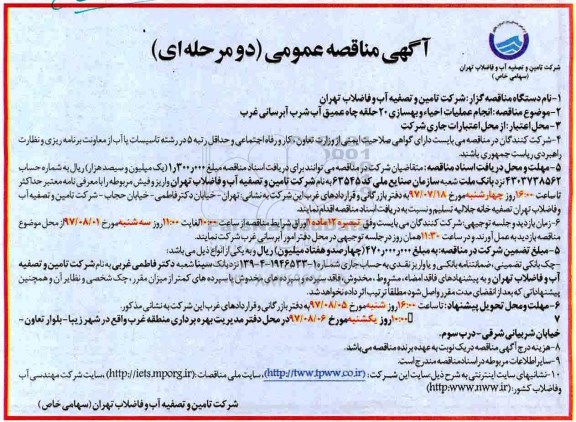 آگهی مناقصه عمومی (دو مرحله ای)
شرکت تامین و تصفیه آب و فاضلاب تهران
(سهامی خاص)
۱-نام دستگاه مناقصه گزار: شرکت تامین و تصفیه آب و فاضلاب تهران
۲-موضوع مناقصه: انجام عملیات احیاء و بهسازی ۲۰ حلقه چاه عمیق آب شرب آبرسانی غرب
۳-محل اعتبار: از محل اعتبارات جاری شرکت
۴-شرکت کنندگان در مناقصه می بایست دارای گواهی صلاحیت ایمنی از وزارت تعاون، کار و رفاه اجتماعی و حداقل رتبه ۵ در رشته تاسیسات یا آب از معاونت برنامه ریزی و نظارت
راهبردی ریاست جمهوری باشند.
۵-مهلت و محل دریافت اسناد مناقصه: متقاضیان شرکت در مناقصه می توانند برای دریافت اسناد مناقصه مبلغ ۱٫۳۰۰٫۰۰۰ (یک میلیون و سیصد هزار) ریال به شماره حساب
۴۳۰۳۷۳۸۵۶۲ نزد بانک ملت شعبه سازمان صنایع ملی کد ۶۳۵۴۵ به نام شرکت تامین و تصفیه آب و فاضلاب تهران واریز و فیش مربوطه را با معرفی نامه معتبر حداکثر
تا ساعت ۱۶:۰۰ روز چهارشنبه مورخ ۹۷/۰۷/۱۸ به دفتر بازرگانی و قراردادهای غرب این شرکت به نشانی: تهران - خیابان دکتر فاطمی - خیابان حجاب - شرکت تامین و تصفیه آب
و فاضلاب تهران تصفیه خانه جلالیه تسلیم و نسبت به دریافت اسناد مناقصه اقدام نمایند.
۶-زمان بازدید و جلسه توجیهی: شرکت کنندگان می بایست وفق برای شرایط مناقصه از ساعت ۱۰:۰۰ لغایت ۱۱:۰۰ روز سه شنبه مورخ ۹۷/۰۸/۰۱ از محل موضوع
مناقصه بازدید به عمل آورند و در ساعت ۱۱:۳۰ همان روز در جلسه توجیهی در محل دفتر امور آبرسانی غرب شرکت نمایند.
۵-مبلغ تضمین شرکت در مناقصه: به مبلغ ۴۷۰٫۰۰۰٫۰۰۰ (چهارصد و هفتاد میلیون) ریال و به یکی از انواع ذیل می باشد:
-چک بانکی تضمینی، ضمانتنامه بانکی و یا واریز نقدی به حساب جاری شماره ۱-۱۹۴۶۵۳۳-۴-۱۳۹ نزد بانک سینا شعبه دکتر فاطمی غربی به نام شرکت تامین و تصفیه
آب و فاضلاب تهران و به پیشنهادهای فاقد امضاء، مشروط، مخدوش، فاقد سپرده و سپرده های مخدوش یا سپرده های کمتر از میزان مقرر، چک شخصی و نظایر آن و همچنین
پیشنهاداتی که بعد از انقضای مدت مقرر واصل شود مطلقا ترتیب اثر داده نخواهد شد.
۶-مهلت و محل تحویل پیشنهاد: تا ساعت ۱۶:۰۰ روز شنبه مورخ ۹۷/۰۸/۰۵ به دفتر بازرگانی و قراردادهای غرب این شرکت به نشانی مذکور.
۷ ۱۰:۰۰ روز یکشنبه مورخ ۹۷/۰۸/۰۶ در محل دفتر مدیریت بهره برداری منطقه غرب واقع در شهر زیبا- بلوار تعاون-
خیابان شربیانی شرقی- درب سوم.
۸-هزینه درج آگهی مناقصه در یک نوبت به عهده برنده مناقصه می باشد.
۹-سایر اطلاعات مربوطه در اسناد مناقصه مندرج است.
۱۰-نشانیهای سایت اینترنتی به شرح ذیل سایت این شرکت: (http://tww.tpww.co.ir)، سایت ملی مناقصات: (http://iets.mporg.ir)، سایت شرکت مهندسی آب
و فاضلاب کشور: (http:www.nww.ir)
شرکت تامین و تصفیه آب و فاضلاب تهران (سهامی خاص)